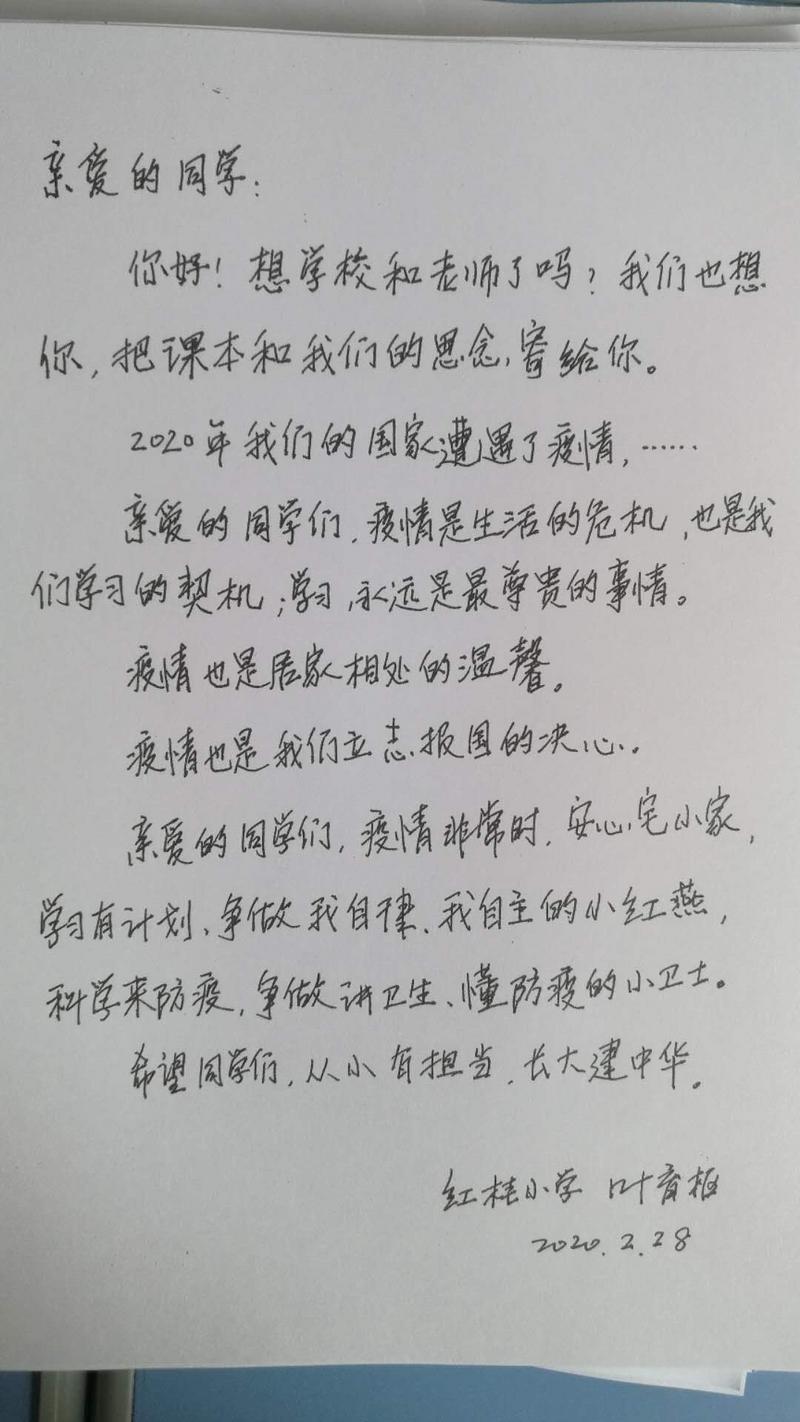 亲爱的同学：
你好！想学校和老师了吗？我们也想
你，把课本和我们的思念，寄给你。
2020年我们的国家遭遇了疫情，……
亲爱的同学们，疫情是生活的危机，也是我
们学习的契机；学习，永远是最尊贵的事情。
疫情也是居家相处的温馨。
疫情也是我们立志报国的决心。
亲爱的同学们，疫情非常时，安心宅小家，
学习有计划、争做我自律、我自主的小红燕，
科学来防疫，争做讲卫生、懂防疫的小卫士。
希望同学们，从小有担当，长大建中华。
红桂小学 叶育
2020.2.28